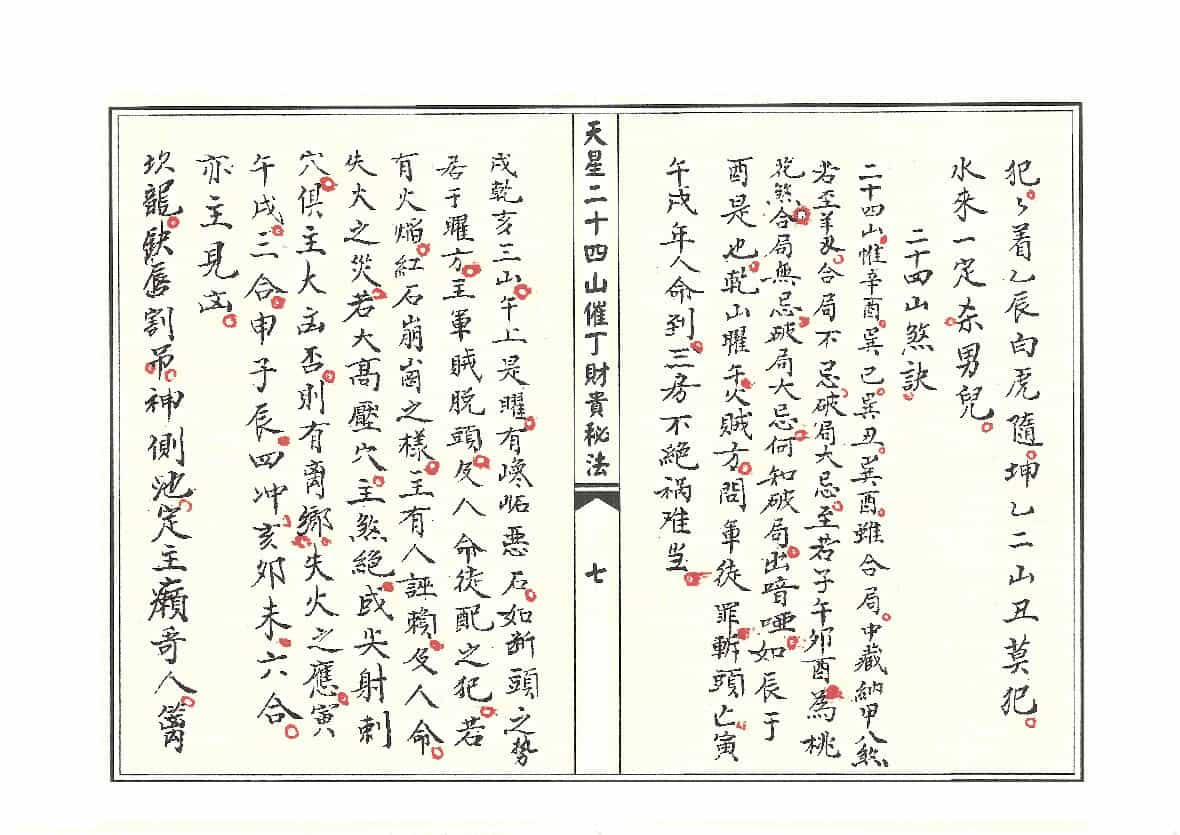 犯々着乙辰白虎隨坤乙二山丑莫犯
水来一定杀男兒
二十四山煞訣
二十四山惟辛酉巽巳巽丑巽酉雖合局中藏納甲八煞
若至羊刃合局不忌破局大忌至若子午卯酉為桃
花煞合局無忌破局大忌何知破局出喑啞如辰于
酉是也乾山曜午火賊方問軍徒罪斬頭亡寅
午戌年人命到三房不絕祸难当
天星二十四山催丁財貴秘法
七
戌乾亥三山午上是曜有巉岩惡石如断頭之勢
居于曜方主軍賊脱頭及人命徒配之犯若
有火焰紅石崩崗之樣主有人誣賴及人命
失火之災若大高壓穴主煞絕或尖射刺
穴俱主大凶否則有离鄉失火之應寅
午戌三合申子辰四冲亥卯未六合
亦主見凶
坎龍缺唇割吊神側池定主癩哥人